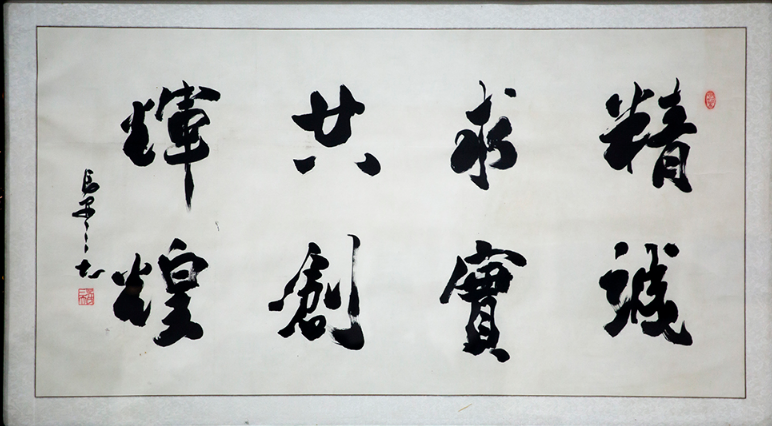 精誠
求實
共創
輝煌